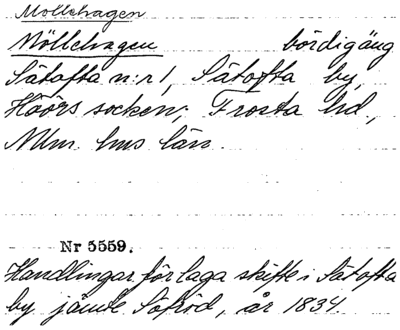 Möllehagen
Möllehagen bördig äng
Sätofta n:r 1, Sätofta by,
Höörs socken, Frosta hd,
Mlm. hus län.
Nr 5559.
Handlingar för laga skifte i Sätofta
by jämte Sofröd, år 1834.